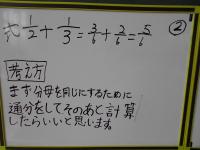 式 1/2 + 1/3 = 3/6 + 2/6 = 5/6 ②
考え方
まず分母を同じにするために
通分をしてそのあと計算
したらいいと思います。